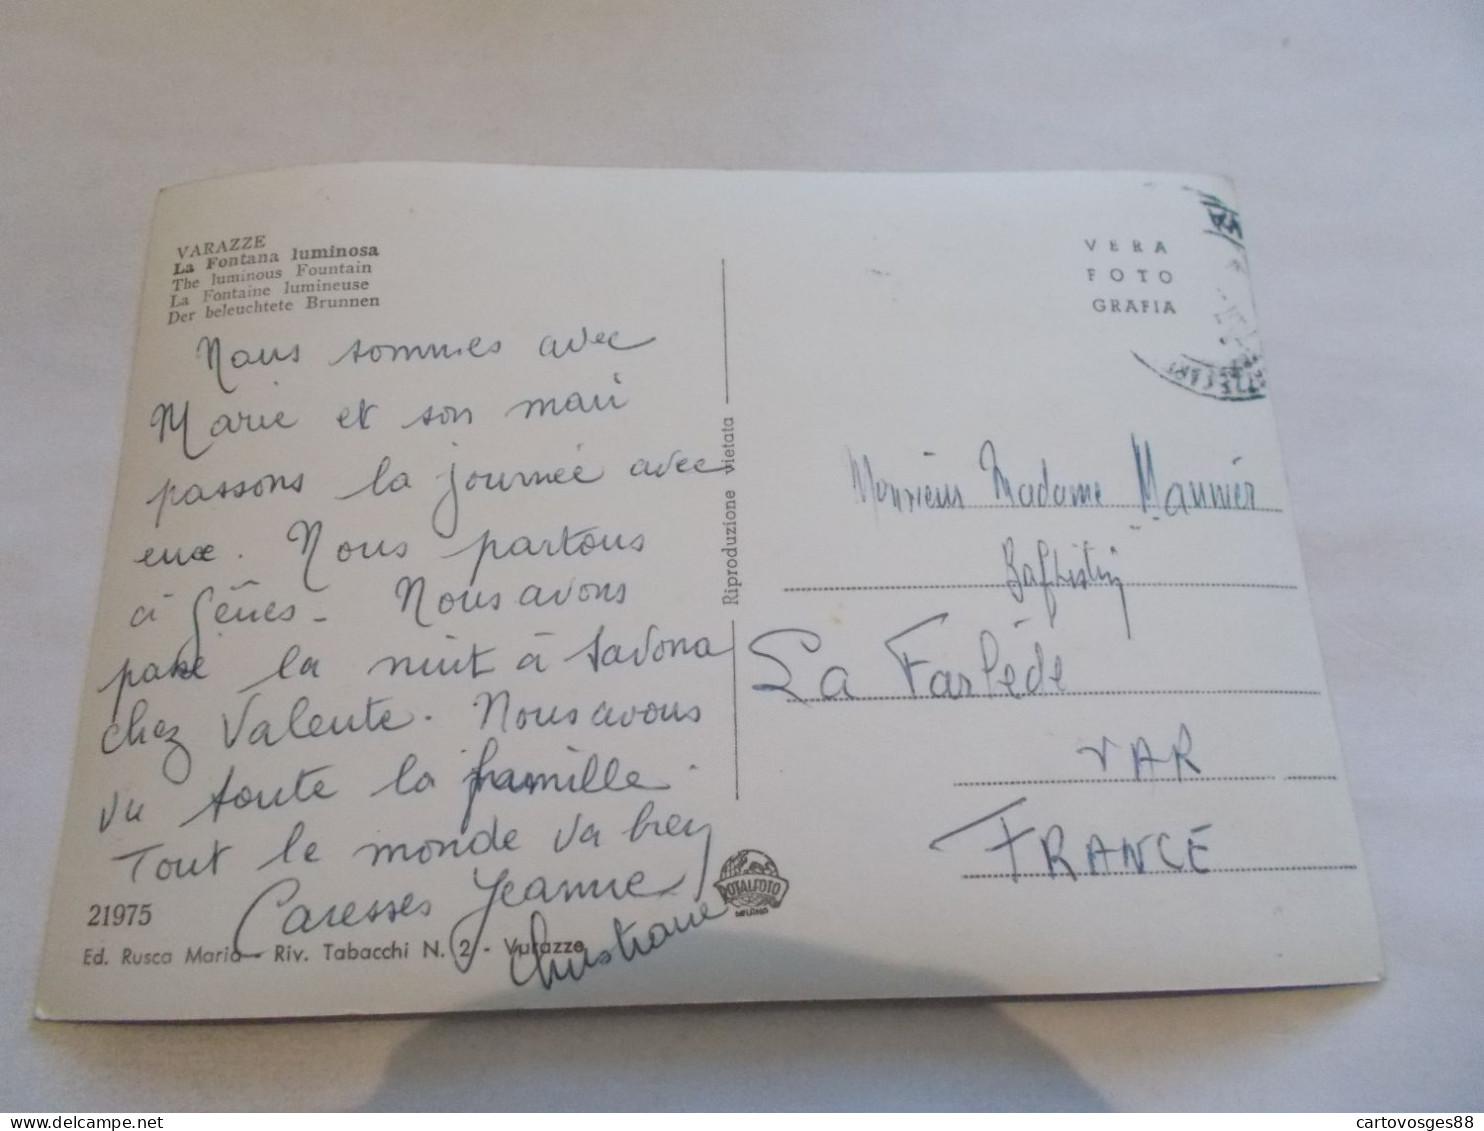 VARAZZE
La Fontana luminosa
The luminous Fountain
La Fontaine lumineuse
Der beleuchtete Brunnen
Nous sommes avec
Marie et son mari
passons la journée avec
eux. Nous partons
à Gênes - Nous avons
passé la nuit à Savona
chez Valente. Nous avons
vu toute la famille.
Tout le monde va bien
Caresses Jeanne
Christiane
21975
Ed. Rusca Mario - Riv. Tabacchi N. 2 - Varazze
Riproduzione vietata
ROTALFOTO
MILANO
VERA
FOTO
GRAFIA
Monsieur Madame Maunier
Baptistin
La Farlède
VAR
FRANCE
cartovosges88